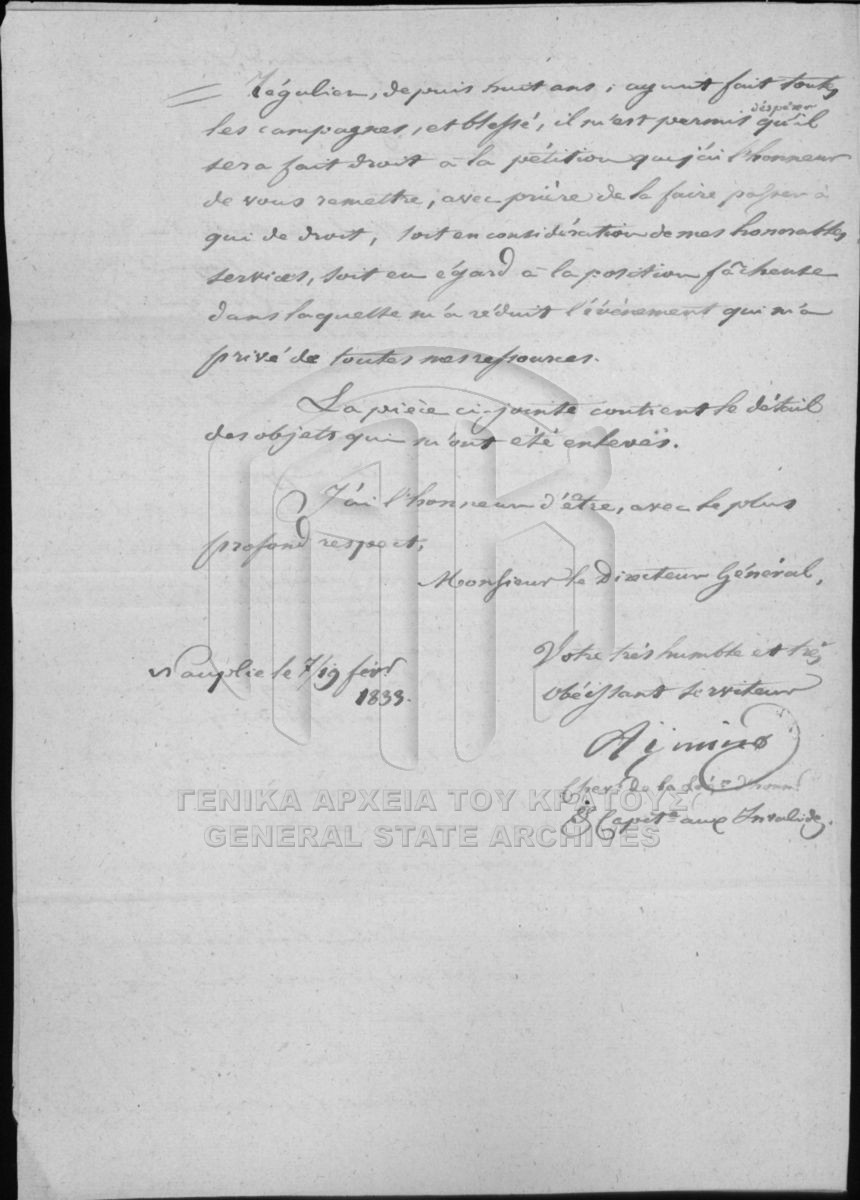 = Régulier, depuis huit ans ; ayant fait toutes
les campagnes, et blessé, il m'est permis d'éspérer qu'il
sera fait droit à la pétition que j'ai l'honneur
de vous remettre, avec prière de la faire passer à
qui de droit, soit en considération de mes honorables
services, soit eu égard à la position fâcheuse
dans laquelle m'a réduit l'événement qui m'a
privé de toutes mes ressources.
La pièce ci-jointe contient le détail
des objets qui m'ont été enlevés.
J'ai l'honneur d'être, avec le plus
profond respect,
Monsieur le Directeur Général,
Votre très humble et très
obéissant serviteur
Nauplie le 7/19 févr
1833.
Chevr de la Légn d'honnr
& Capitne aux Invalides.
ΓΕΝΙΚΑ ΑΡΧΕΙΑ ΤΟΥ ΚΡΑΤΟΥΣ
GENERAL STATE ARCHIVES